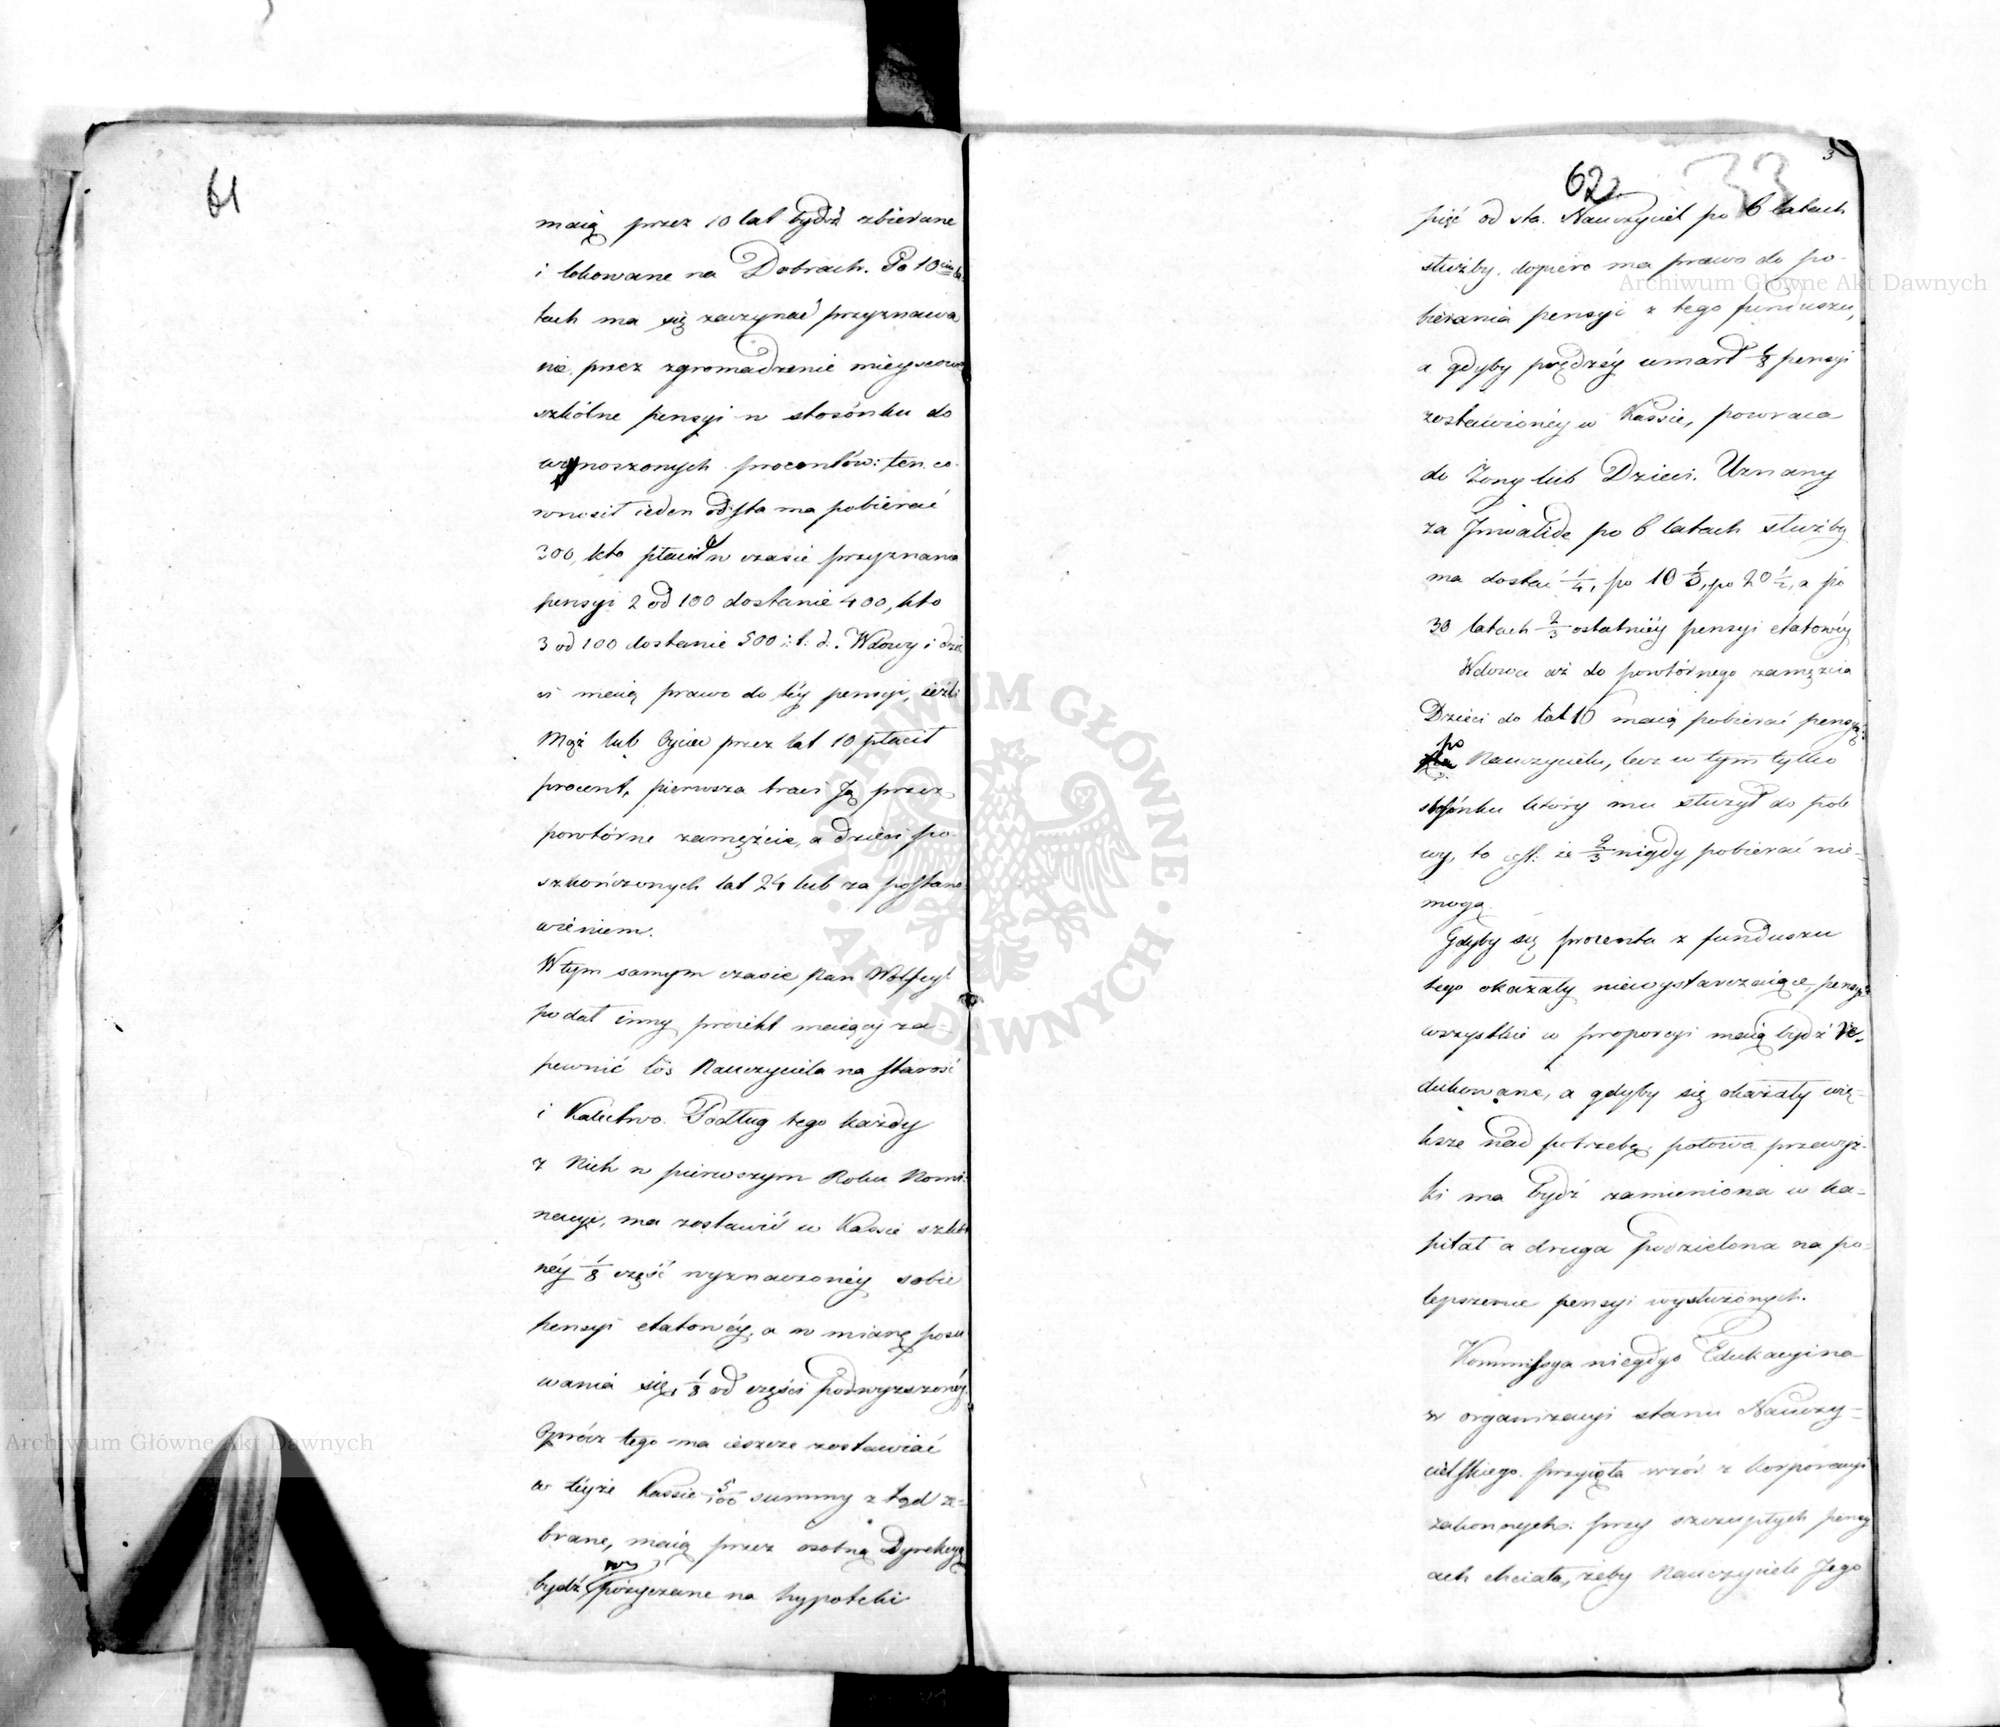 61
maią przez 10 lat bydź zbierane
i lokowane na Dobrach. Po 10ciu la-
tach ma się zaczynać przyznawa
nie, przez zgromadzenie mieyscowe
szkólne pensyi w stosónku do
wynoszonych procentów: ten co
wnosił ieden od sta ma pobierać
300, kto płacił w czasie przyznana
pensyi 2 od 100 dostanie 400, kto
3 od 100 dostanie 500 i. t. d. Wdowy i dzie
ci maią prawo do téy pensyi, ieżli
Mąż lub Oyciec przez lat 10 płacił
procent, pierwsza traci Ją przez
powtórne zamęźcie, a dzieci po
szkończonych lat 24 lub za postano
wieniem.
W tym samym czasie Pan Wolfey
podał inny proiekt maiący za-
pewnić los Nauczyciela na starość
i Kalectwo. Podług tego każdy
z Nich w pierwszym Roku Nomi-
nacyi, ma zostawić w Kassie szkol
néy 1/8 część wyznaczonéy sobie
pensyi etatowéy, a w miarę posu
wania się, 1/8 od części podwyższonéy.
Oprócz tego ma ieszcze zostawiać
w téyże Kassie 5/100 summy z tąd ze-
brane, maią przez osobną Dyrekcyą
wy
bydź pożyczane na hypoteki
62
33
3
pięć od sta. Nauczyciel po 6 latach
służby, dopiero ma prawo do po-
bierania pensyi z tego funduszu,
a gdyby prędzéy umarł 1/8 pensyi
zostawionéy w Kassie, powraca
do Żony lub Dzieci. Uznany
za Jnwalidę po 6 latach służby
ma dostać 1/4, po 10 1/3, po 20 1/2, a po
30 latach 2/3 ostatniéy pensyi etatowéy
Wdowa aż do powtórnego zamęzcia
Dzieci do lat 10 maią pobierać pensyą
po
Nauczycielu, lecz w tym tylko
stosónku który mu służył do poło
wy, to iest: że 2/3 nigdy pobierać nie-
mogą.
Gdyby się procenta z funduszu
tego okazały niewystarczaiące, pensye
wszystkie w proporcyi maią bydź re-
dukowane, a gdyby się okazały wię-
ksze nad potrzebę, połowa przewyż-
ki ma bydź zamieniona w ka-
pitał a druga podzielona na po-
lepszenie pensyi wysłużonych.
Kommissya niegdyś Edukacyina
w organizacyi stanu Nauczy-
cielskiego przyięła wzór z korporacyi
zakonnych: przy szczupłych pensy
ach chciała, żeby Nauczyciele Jego
Archiwum Główne Akt Dawnych
Archiwum Główne Akt Dawnych
ARCHIWUM GŁÓWNE · AKT DAWNYCH ·